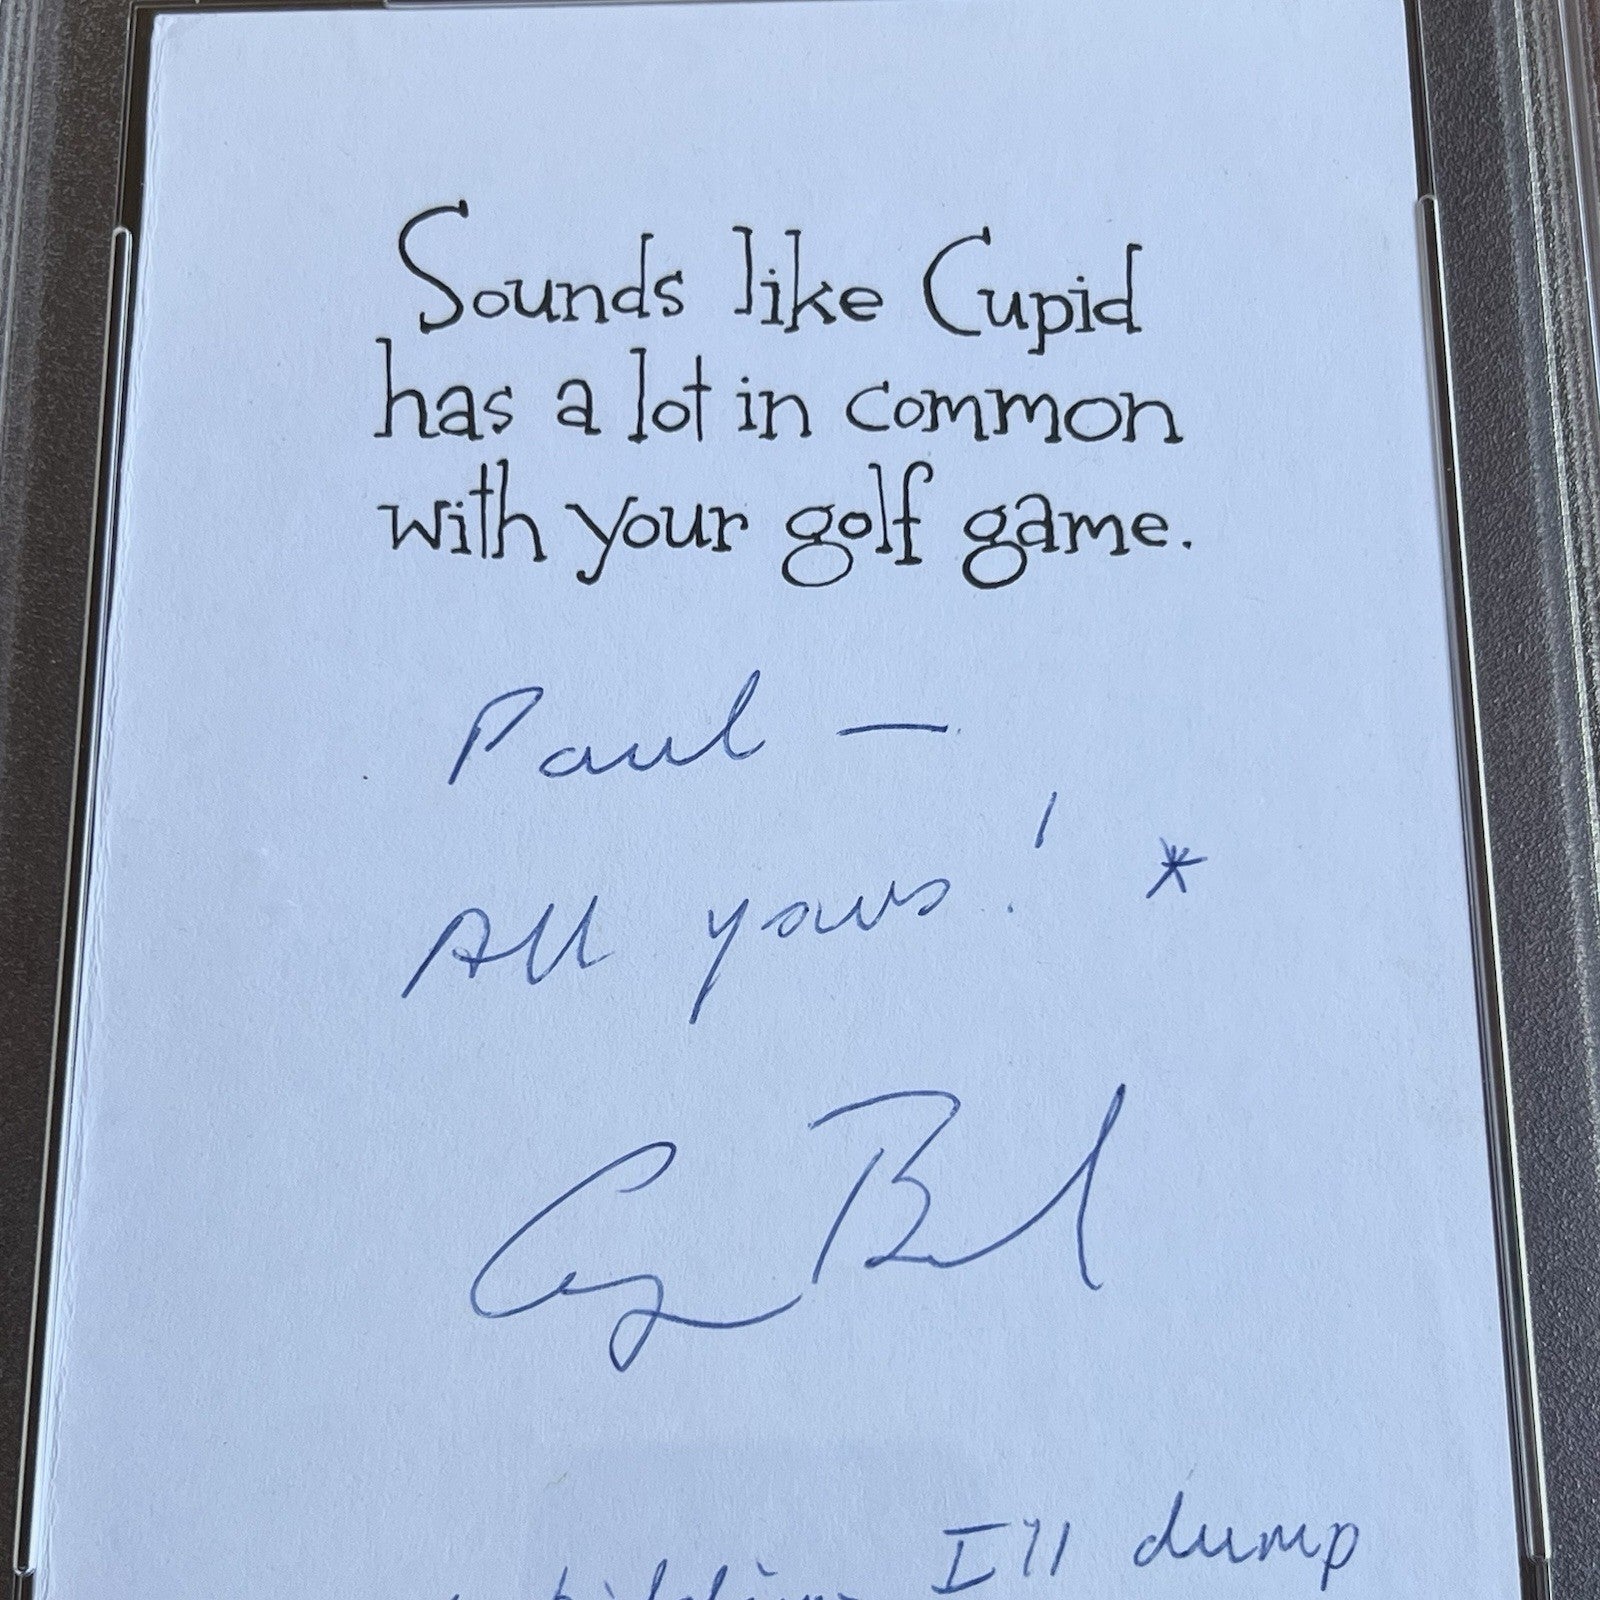 Sounds like Cupid
has a lot in common
with your golf game.
Paul —
All yours! *
I'll dump